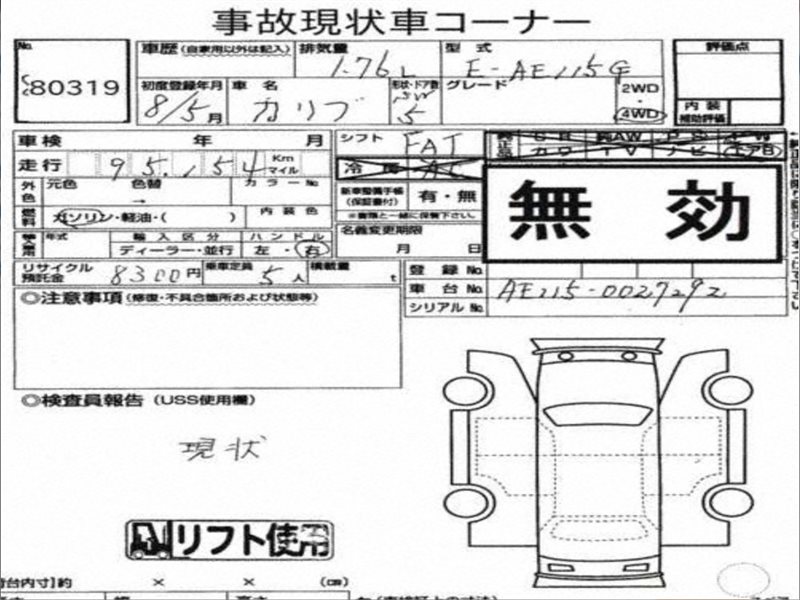 事故現状車コーナー
No. 80319
車歴(自家用以外は記入)
排気量 1.76 L
型式 E-AE115G
評価点
初度登録年月 8/5月
車名 カリブ
形状・ドア数 5
グレード
2WD・4WD
内装補助評価
車検 年 月
シフト FAT
走行 95,154 Km マイル
冷房 AC
無効
外色 元色 色替 → カラーNo.
新車整備手帳(保証書付) 有・無
※書類と一緒に保管下さい。
燃料 ガソリン・軽油・( )
内装色
名義変更期限 月 日
年式 輸入区分 ハンドル
ディーラー・並行 左・右
リサイクル預託金 8300円
乗車定員 5人
積載量 t
登録No.
車台No. AE115-0027292
シリアルNo.
◎注意事項(修復・不具合箇所および状態等)
◎検査員報告(USS使用欄)
現状
リフト使用
荷台内寸]約 × × (cm)